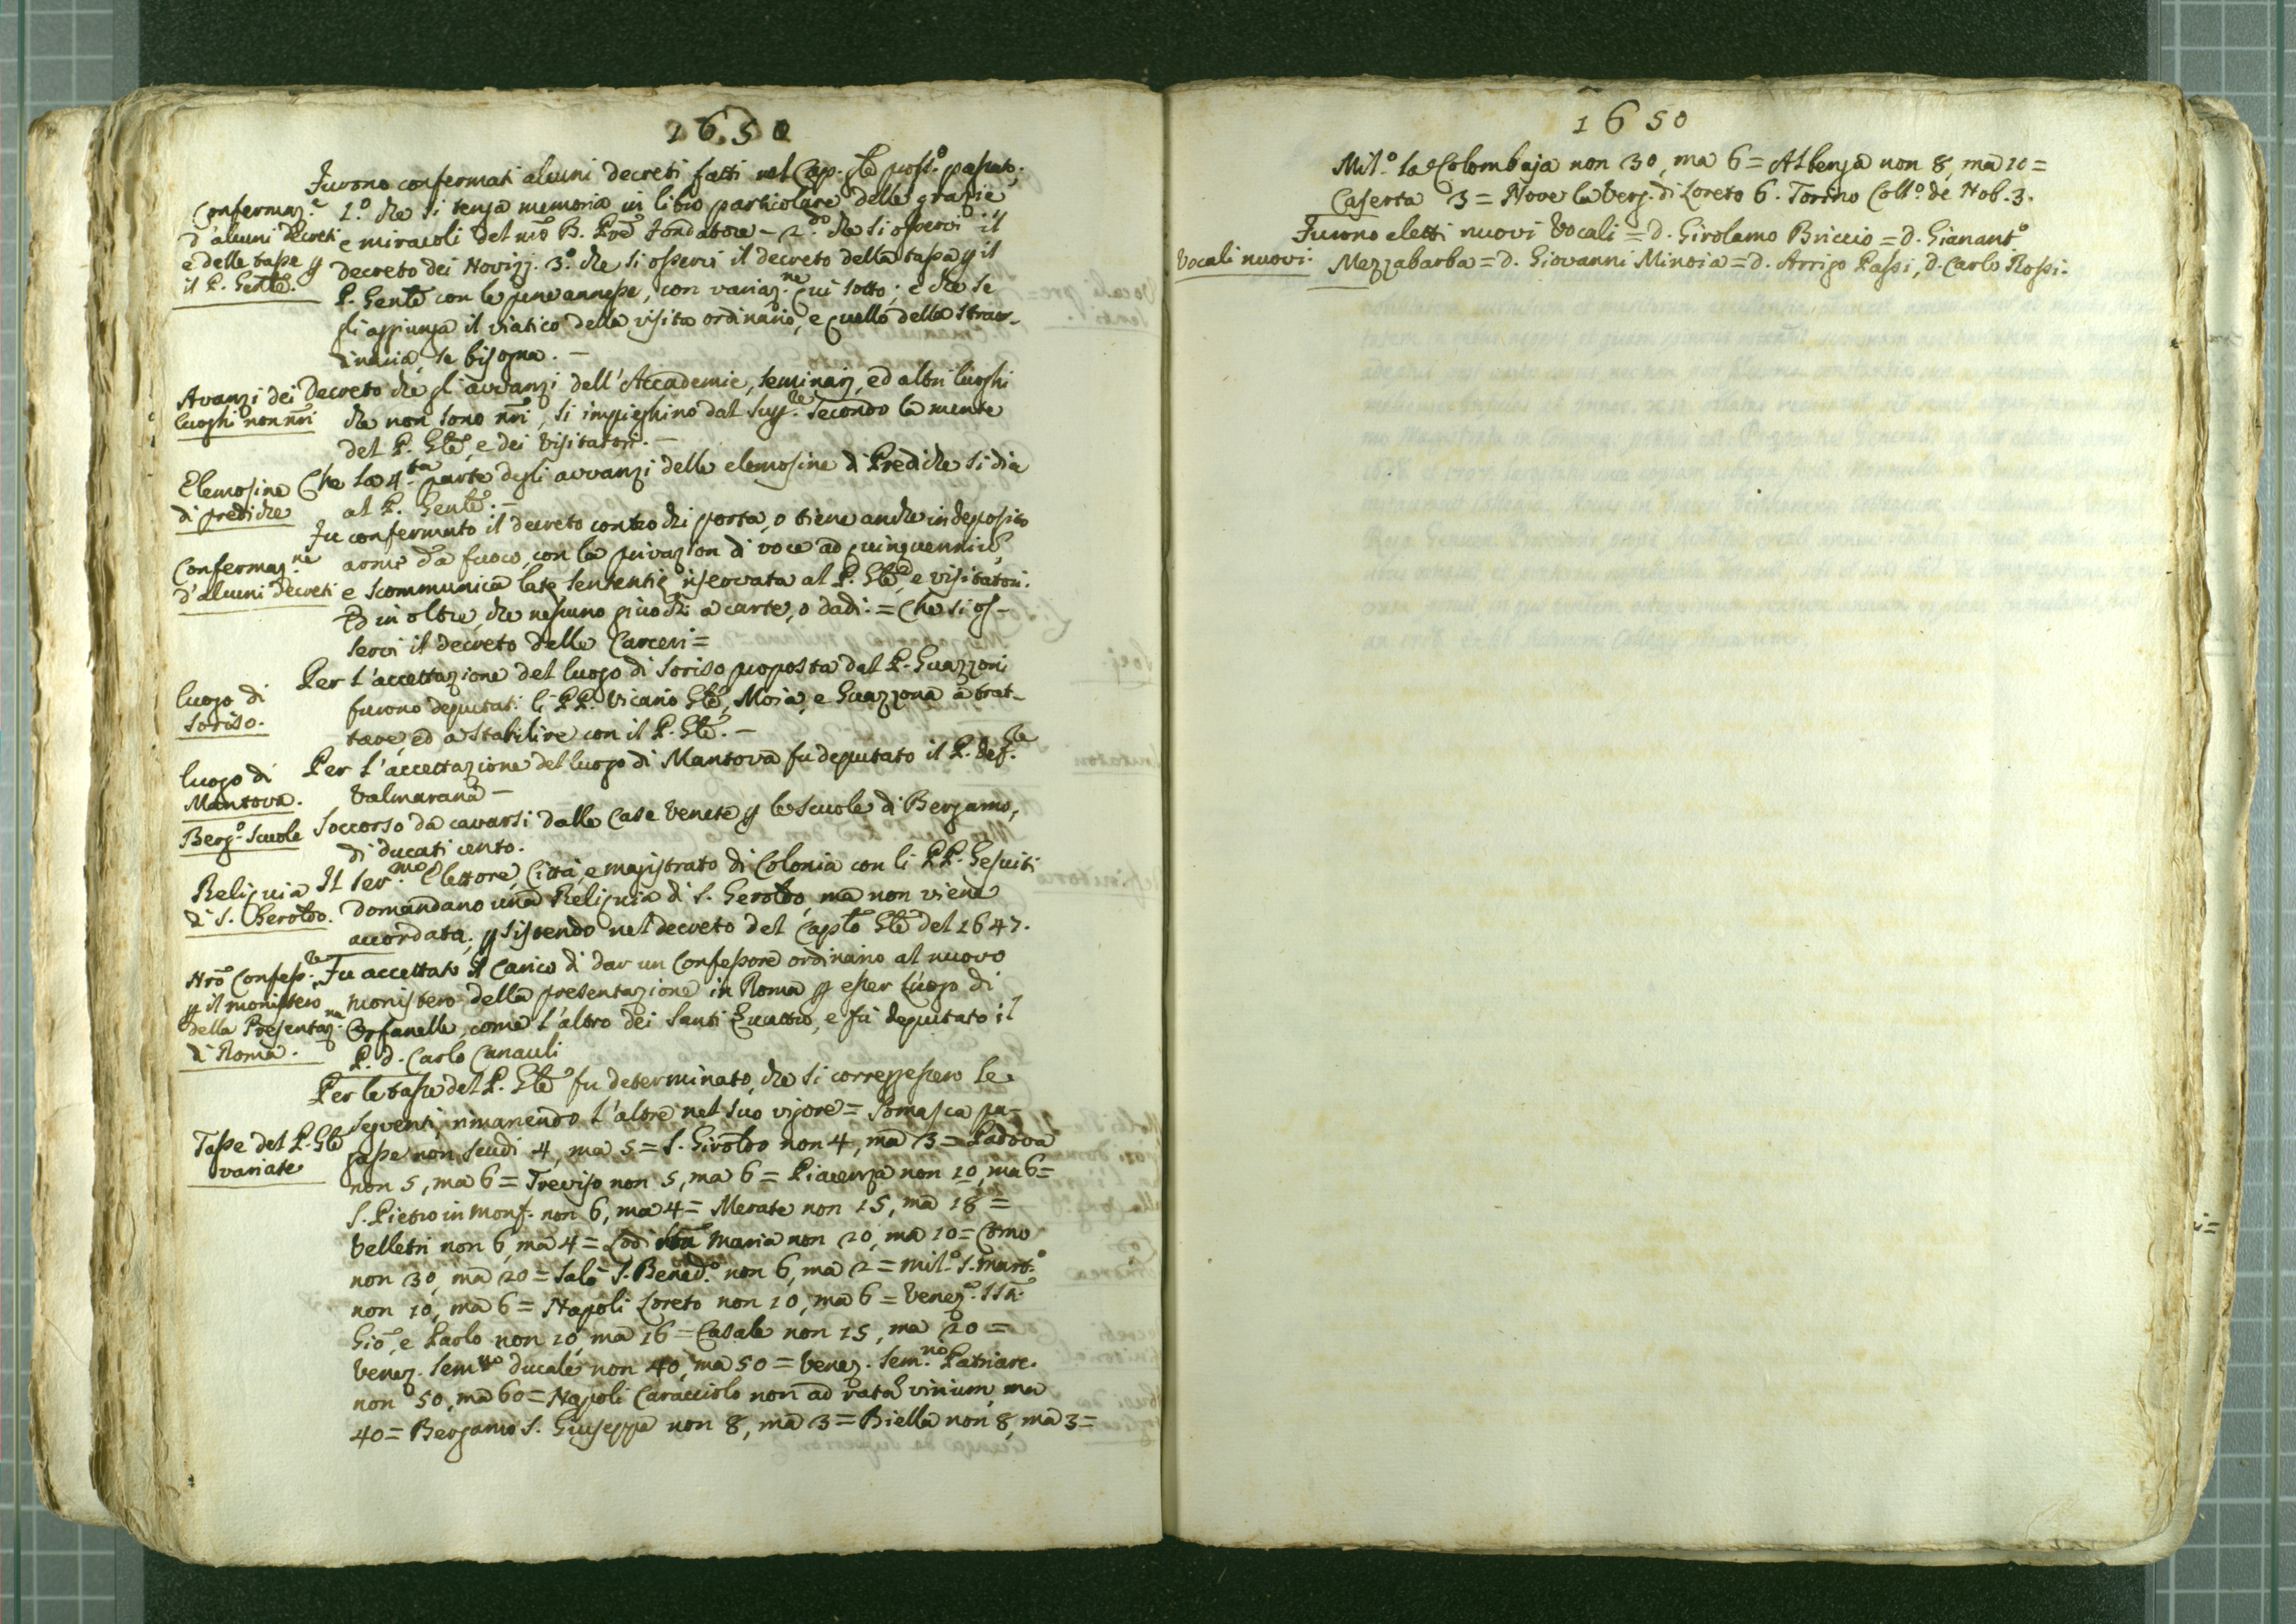 1650
Furono confermati alcuni decreti fatti nel Cap. gle post.o passato;
Confermaz.e
d'alcuni Decreti
e delle tasse p
il P. Genle.
1.o che si tenga memoria in libro particolare delle grazie
e miracoli del nro B. Pre Fondatore - 2.do che si osservi il
decreto dei Novizj. 3.o che si osservi il decreto della tassa p il
P. Genle con le pene annesse, con variaz.ne qui sotto; e che se
gli aggiunga il viatico della visita ordinario, e quello della straor-
dinaria, se bisogna. -
Avanzi dei
luoghi non nri
Decreto che gl'avvanzi dell'Accademie, seminarj, ed altri luoghi
che non sono nri, si impieghino dal Sup.re secondo la mente
del P. Gle, e dei Visitatori. -
Elemosine
di prediche
Che la 4.ta parte degli avvanzi delle elemosine di Prediche si dia
al P. Genle. -
Confermaz.ne
d'alcuni Decreti
Fu confermato il decreto contro chi porta, o tiene anche in deposito
arme da fuoco, con la privazion di voce ad quinquennium,
e scommunica latę sententię riservata al P. Gle, e visitatori.
Ed in oltre, che nessuno giuochi a carte, o dadi. = Che si os-
servi il decreto delle Carceri =
luogo di
Soriso.
Per l'accettazione del luogo di Soriso proposta dal P. Guazzoni
furono deputati li PP. Vicario Gle, Moia, e Guazzona a trat-
tare, ed a stabilire con il P. Gle. -
luogo di
Mantova.
Per l'accettazione del luogo di Mantova fu deputato il P. Def.re
Valmarana -
Berg.o Scuole
Soccorso da cavarsi dalle Case Venete p le scuole di Bergamo,
di ducati cento.
Reliquia
di S. Geroldo.
Il Ser.mo Elettore, Città, e magistrato di Colonia con li PP. Gesuiti
domandano una Reliquia di S. Geroldo, ma non viene
accordata; psistendo nel decreto del Caplo Gle del 1647.
Nro Confess.re
p il monistero
della Presentaz.ne
di Roma.
Fu accettato il carico di dar un Confessore ordinario al nuovo
monistero della presentazione in Roma p esser luogo di
Orfanelle, come l'altro dei Santi Quattro, e fu deputato il
P. d. Carlo Canauli
Tasse del P. Gle
variate
Per le tasse del P. Gle fu determinato, che si corregessero le
seguenti, rimanendo l'altre nel suo vigore = Somasca pa-
gasse non scudi 4, ma 5 = S. Giroldo non 4, ma 3 = Padova
non 5, ma 6 = Treviso non 5, ma 6 = Piacenza non 10, ma 6 =
S. Pietro in Monf. non 6, ma 4 = Merate non 15, ma 18 =
Velletri non 6, ma 4 = Lodi Maria non 20, ma 10 = Como
non 30, ma 20 = Salò S. Bened.o non 6, ma 2 = Mil.o S. Mart.o
non 10, ma 6 = Napoli Loreto non 10, ma 6 = Venez.a SSti
Gio, e Paolo non 10, ma 16 = Casale non 15, ma 20 =
Venez. Sem.rio ducale non 40, ma 50 = Venez. Sem.rio Patriarc.
non 50, ma 60 = Napoli Caracciolo non ad ratam, ma
40 = Bergamo S. Giuseppe non 8, ma 3 = Biella non 8, ma 3 =
1650
Mil.o la Colombaja non 30, ma 6 = Albenga non 8, ma 10 =
Caserta 3 = Nove la Verg. di Loreto 6. Torino Coll.o de Nob. 3.
Vocali nuovi.
Furono eletti nuovi Vocali = d. Girolamo Briccio = d. Gianant.o
Mezzabarba = d. Giovanni Minoia = d. Arrigo Passi, d. Carlo Rossi.